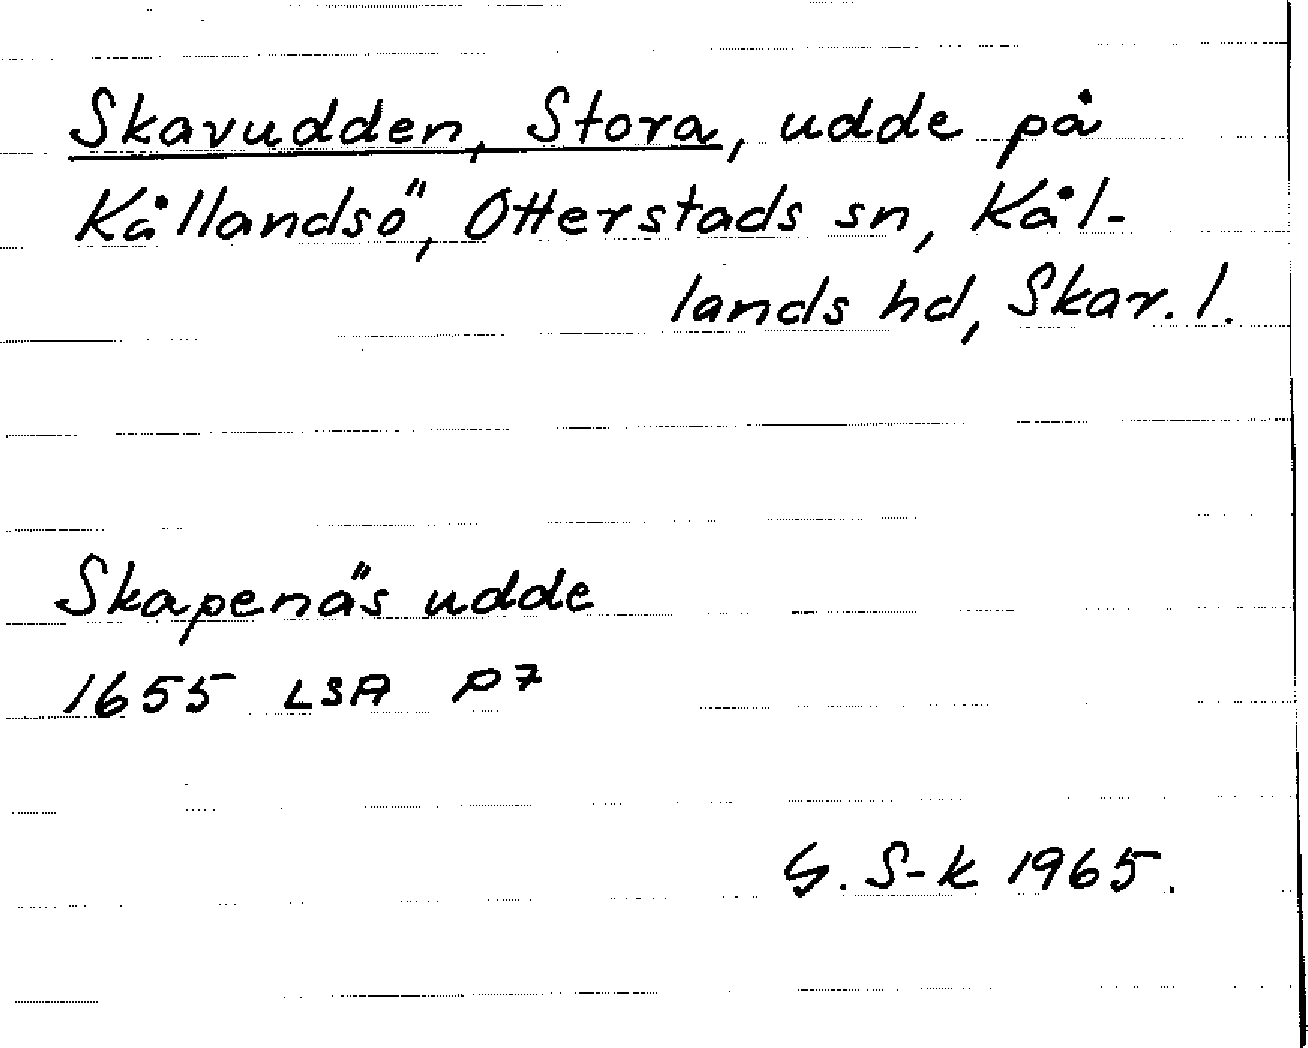 Skavudden, Stora, udde på
Kållandsö, Otterstads sn, Kål-
lands hd, Skar. l.
Skapenäs udde
1655 LSA P7
G. S-k 1965.